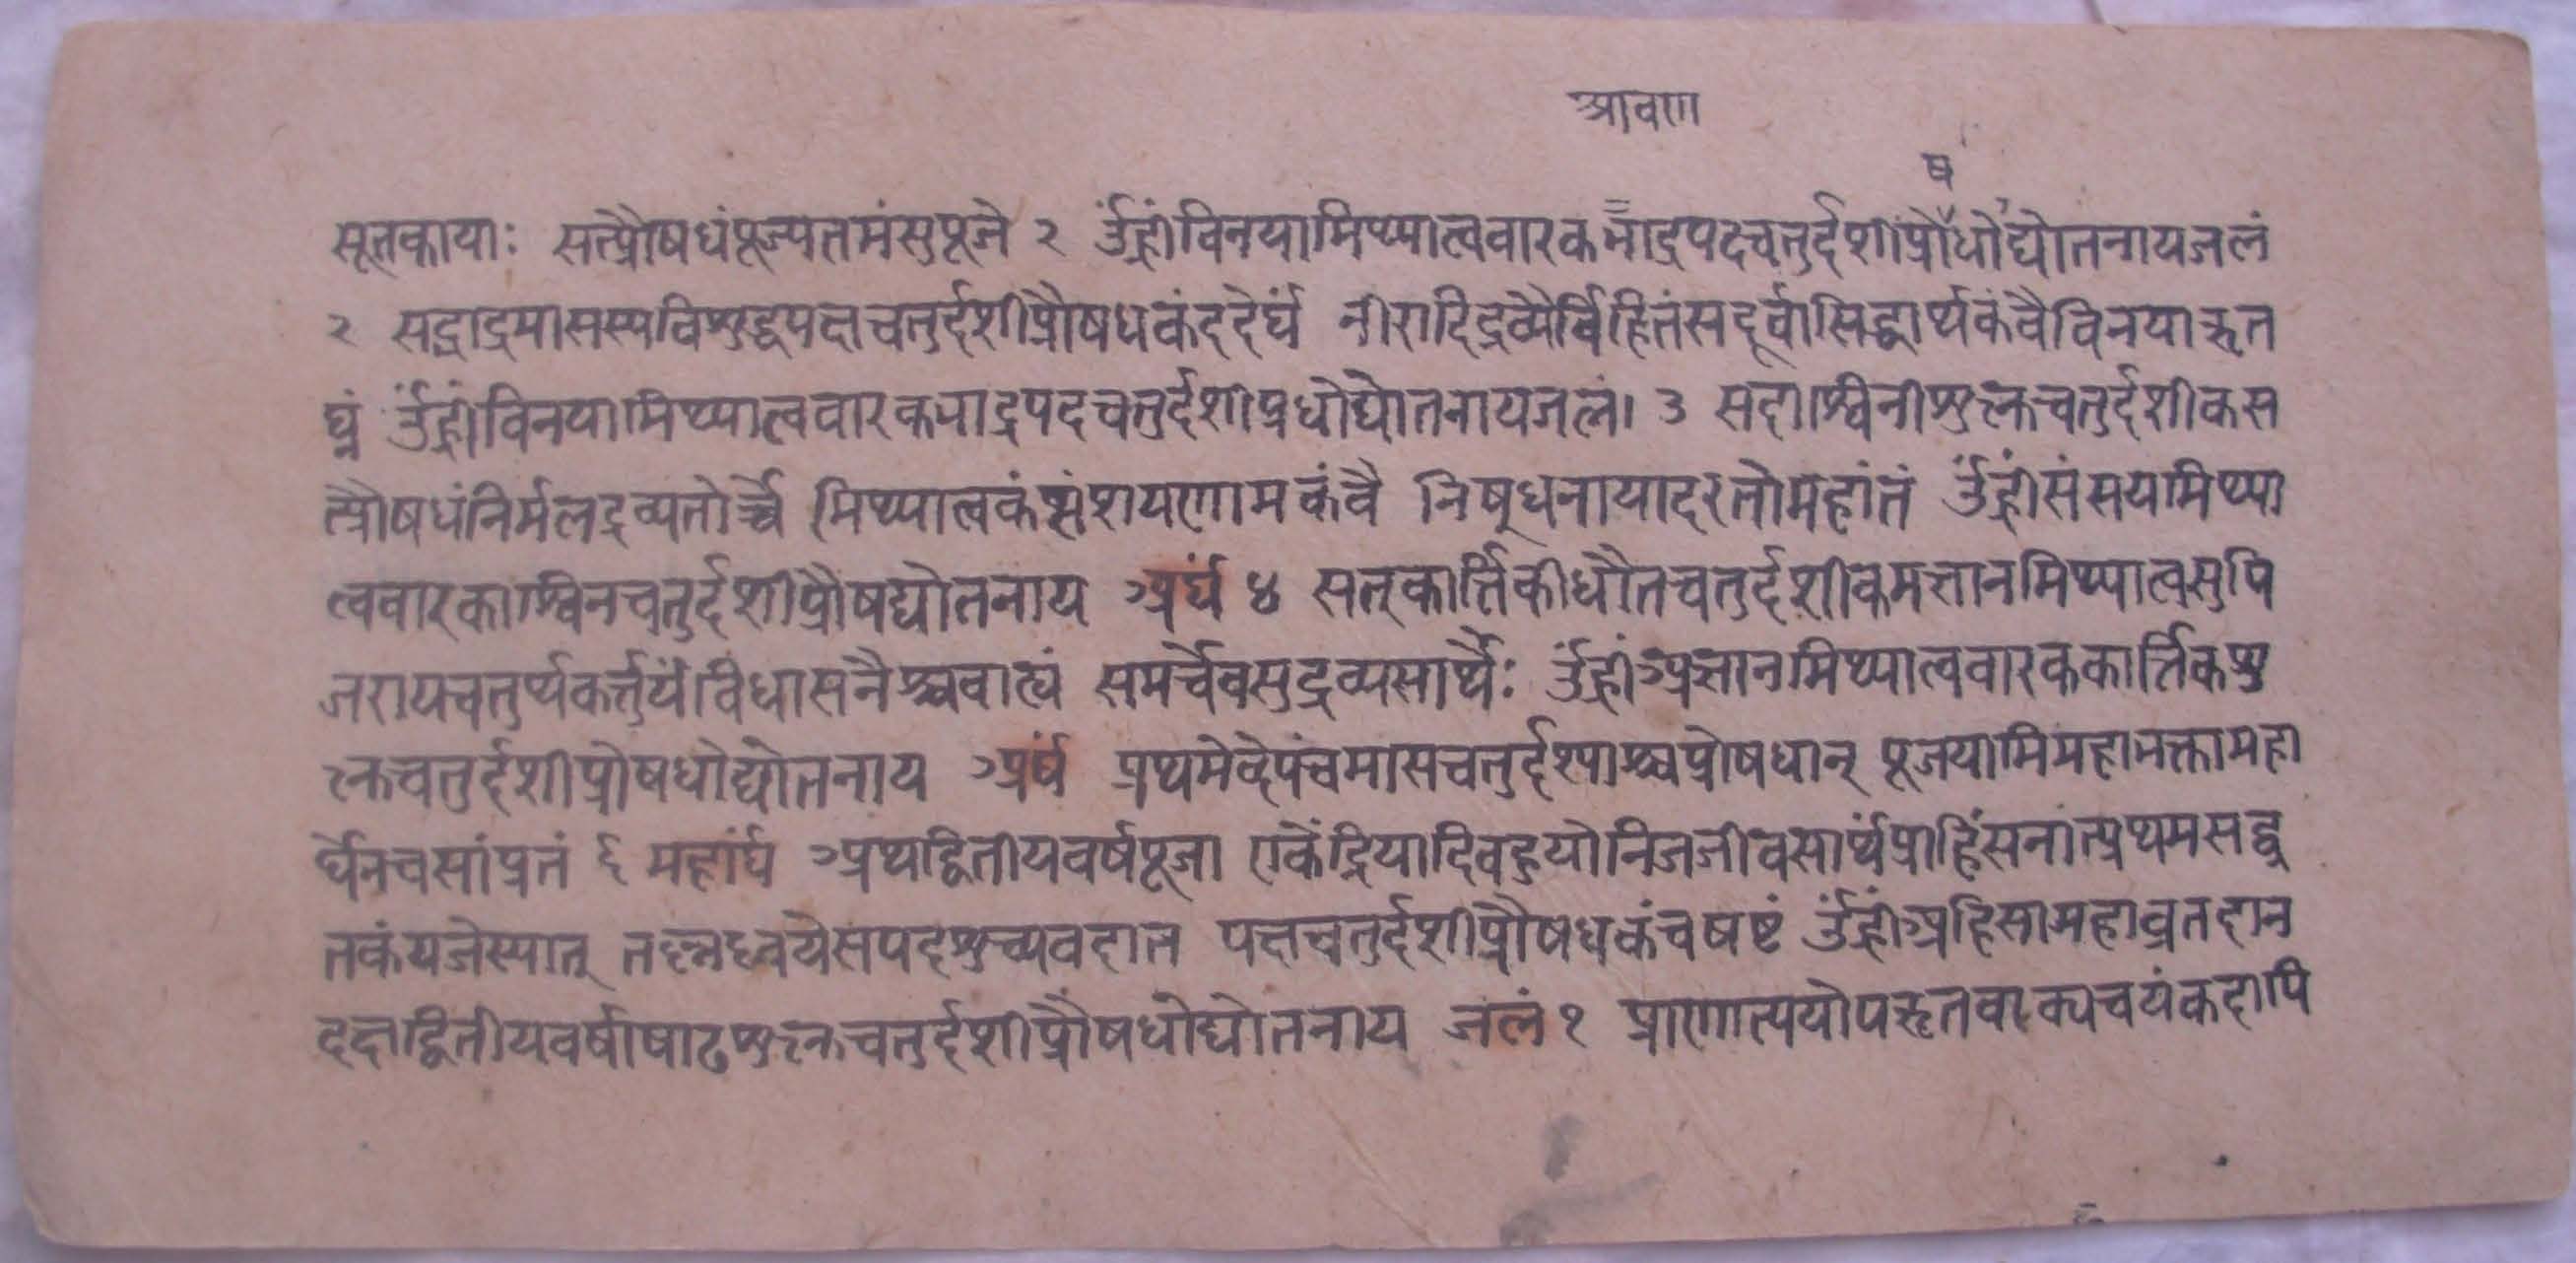 श्रावण
ष
सूतकायाः सत्प्रौषधंपूज्यतमंसुपूजे २ ॐह्रींविनयामिथ्यात्ववारकभाद्रपदचतुर्दशीप्रौधोद्योतनायजलं
२ सद्भाद्रमासस्यविशुद्धपक्षचतुर्दशीप्रौषधकंददेर्घं नीरादिद्रव्यैर्विहितंसदूर्वासिद्धार्थकंवैविनयाहृत
घ्नं ॐह्रींविनयामिथ्यात्ववारकभाद्रपदचतुर्दशीप्रधोद्योतनायजलं। ३ सदाश्विनीशुक्लचतुर्दशीकस
त्प्रौषधंनिर्मलद्रव्यतोर्च्चे मिथ्यात्वकंसंशयणामकंवै निषूधनायादरतोमहांतं ॐह्रींसंसयमिथ्या
त्ववारकाश्विनचतुर्दशीप्रौषद्योतनाय अर्घं ४ सत्कार्त्तिकीधौतचतुर्दशीकमज्ञानमिथ्यात्वसुपि
जरायचतुर्थकर्त्तुर्यं समर्चेवसुद्रव्यसार्थैः ॐह्रींअज्ञानमिथ्यात्ववारककार्त्तिकशु
क्लचतुर्दशीप्रोषधोद्योतनाय अर्घं प्रथमेब्देपंचमासचतुर्दश्याश्चप्रोषधान् पूजयामिमहाभक्तामहा
र्घेनचसांप्रतं ६ महार्घं अथद्वितीयवर्षपूजा एकेंद्रियादिबहुयोनिजजीवसार्थंप्राहिंसनांत्प्रथमसद्व्र
तकंयजेस्यात् पक्षचतुर्दशीप्रौषधकंचषष्टं ॐह्रींअहिसामहाव्रतदान
दक्षद्वितीयवर्षाषाढशुक्लचतुर्दशीप्रौषधोद्योतनाय जलं १ प्राणात्ययोपहृतवाक्यचयंकदापि